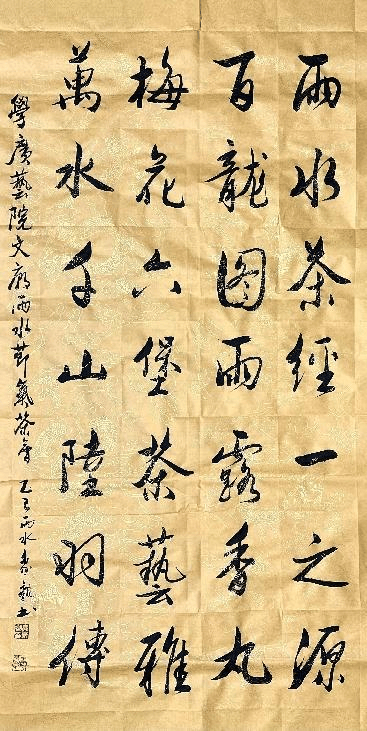 雨水茶經一之源
百龍图雨露香丸
梅花六堡茶藝雅
萬水千山陸羽傳
學廣藝院文廊雨水節氣茶會 乙巳雨水